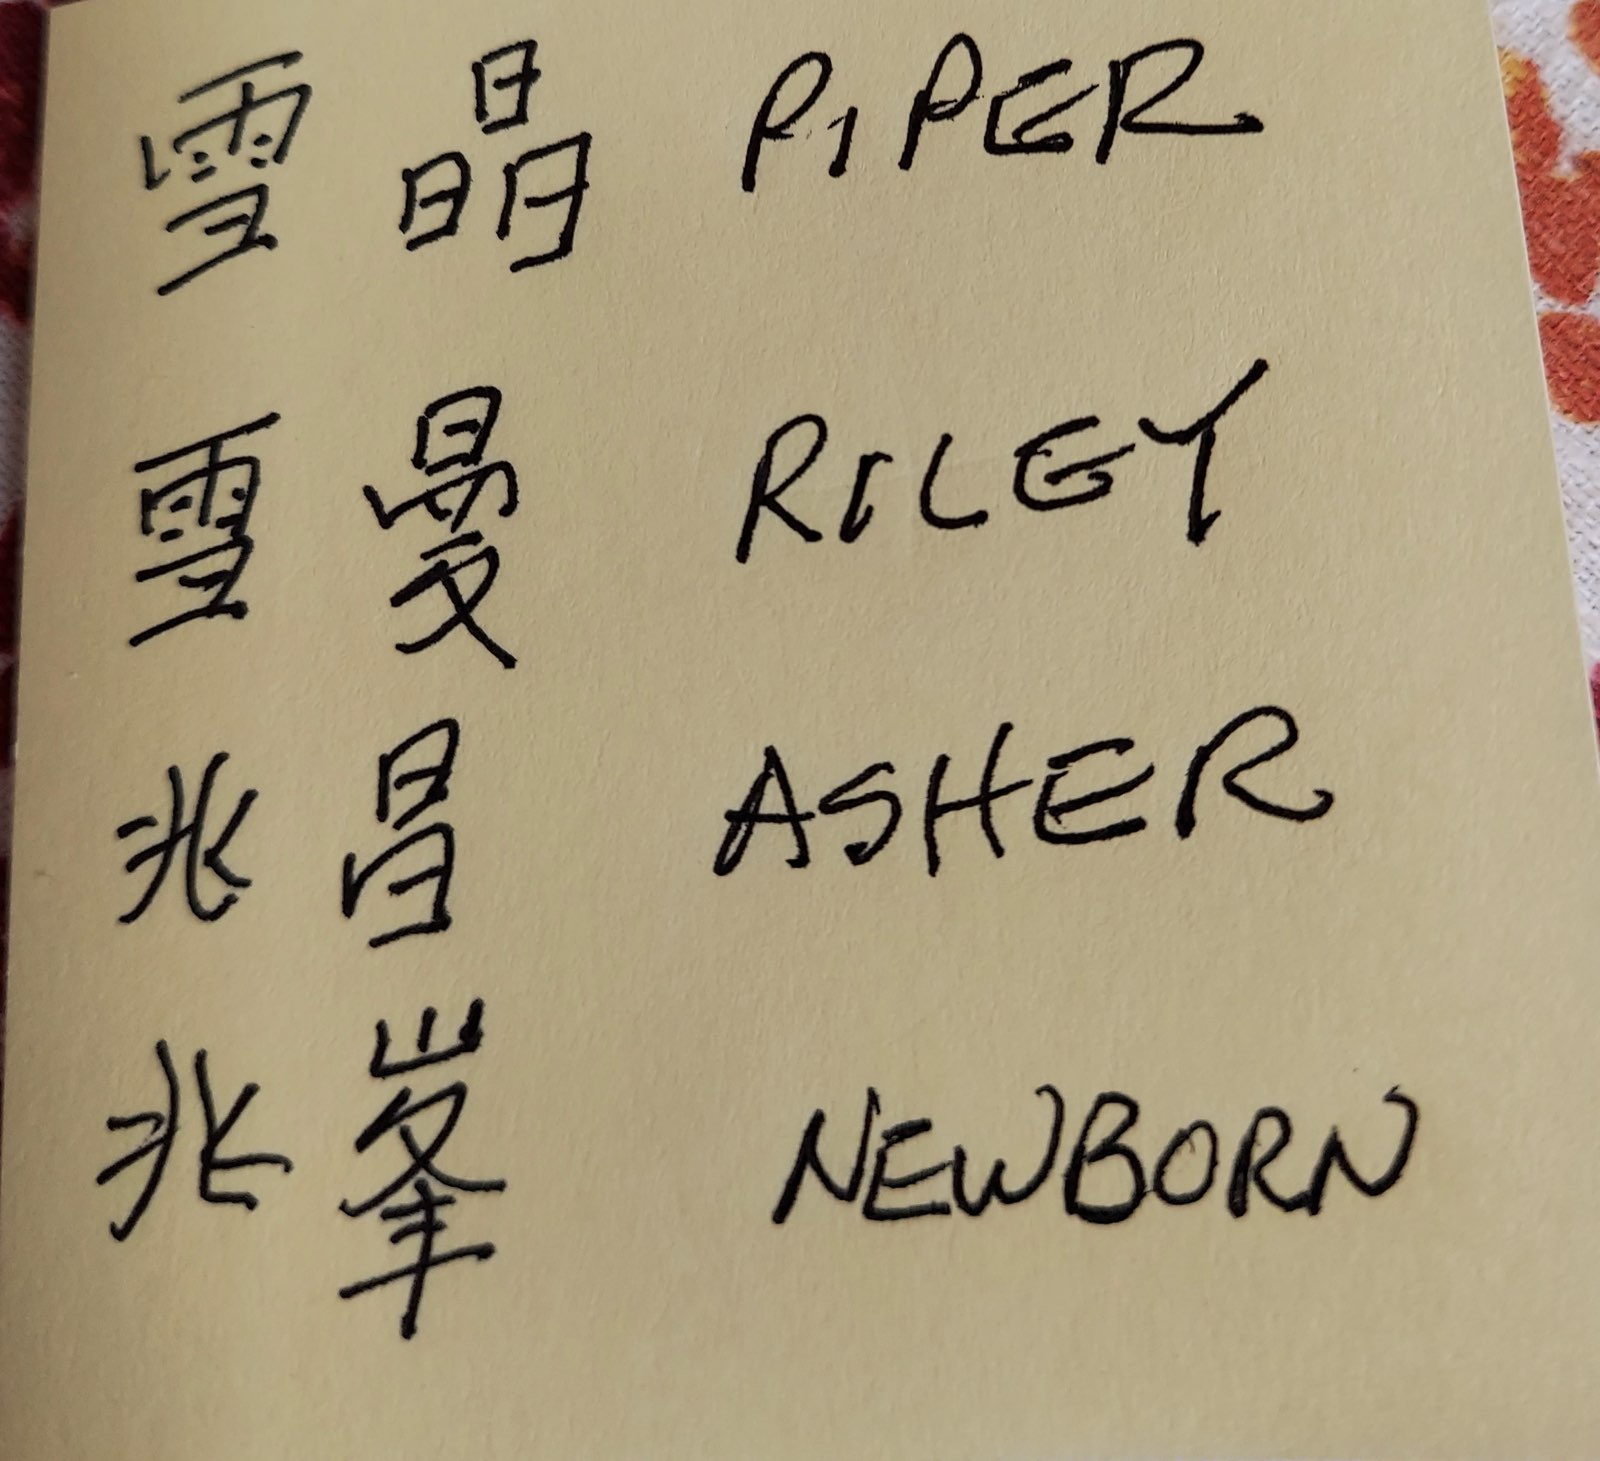 雪 晶 PIPER
雪 曼 RILEY
兆 昌 ASHER
兆 峯 NEWBORN